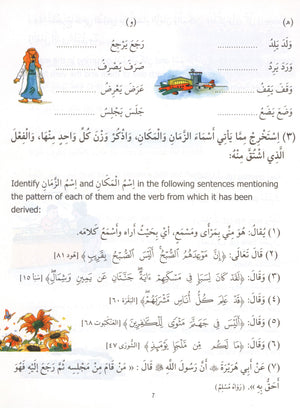 (٨) (و)
وَلَدَ يَلِدُ ........... رَجَعَ يَرْجِعُ ...........
وَرَدَ يَرِدُ ........... صَرَفَ يَصْرِفُ ...........
وَقَفَ يَقِفُ ........... عَرَضَ يَعْرِضُ ...........
وَضَعَ يَضَعُ ........... جَلَسَ يَجْلِسُ ...........
(٣) اِسْتَخْرِجْ مِمَّا يَأْتِي أَسْمَاءَ الزَّمَانِ وَالْمَكَانِ، وَاذْكُرْ وَزْنَ كُلِّ وَاحِدٍ مِنْهَا، وَالْفِعْلَ
الَّذِي اشْتُقَّ مِنْهُ:
Identify اِسْمُ الْمَكَانِ and اِسْمُ الزَّمَانِ in the following sentences mentioning
the pattern of each of them and the verb from which it has been
derived:
(١) يُقَالُ: هُوَ مِنِّي بِمَرْأًى وَمَسْمَعٍ، أَيْ بِحَيْثُ أَرَاهُ وَأَسْمَعُ كَلَامَهُ.
(٢) قَالَ تَعَالَى: ﴿ إِنَّ مَوْعِدَهُمُ ٱلصُّبْحُ أَلَيْسَ ٱلصُّبْحُ بِقَرِيبٍ ﴾ [هود ٨١]
(٣) وَقَالَ: ﴿لَقَدْ كَانَ لِسَبَإٍ فِي مَسْكَنِهِمْ ءَايَةٌ جَنَّتَانِ عَن يَمِينٍ وَشِمَالٍ﴾ [سبأ ١٥]
(٤) وَقَالَ: ﴿قَدْ عَلِمَ كُلُّ أُنَاسٍ مَّشْرَبَهُمْ﴾ [البقرة ٦٠]
(٥) وَقَالَ: ﴿أَلَيْسَ فِي جَهَنَّمَ مَثْوًى لِّلْكَٰفِرِينَ﴾ [العنكبوت ٦٨]
(٦) وَقَالَ: [الشورى ٤٧]
(٧) عَنْ أَبِي هُرَيْرَةَ أَنَّ رَسُولَ اللهِ ﷺ قَالَ: «مَنْ قَامَ مِنْ مَجْلِسِهِ ثُمَّ رَجَعَ إِلَيْهِ فَهُوَ
أَحَقُّ بِهِ» . (رواه مسلم)
7